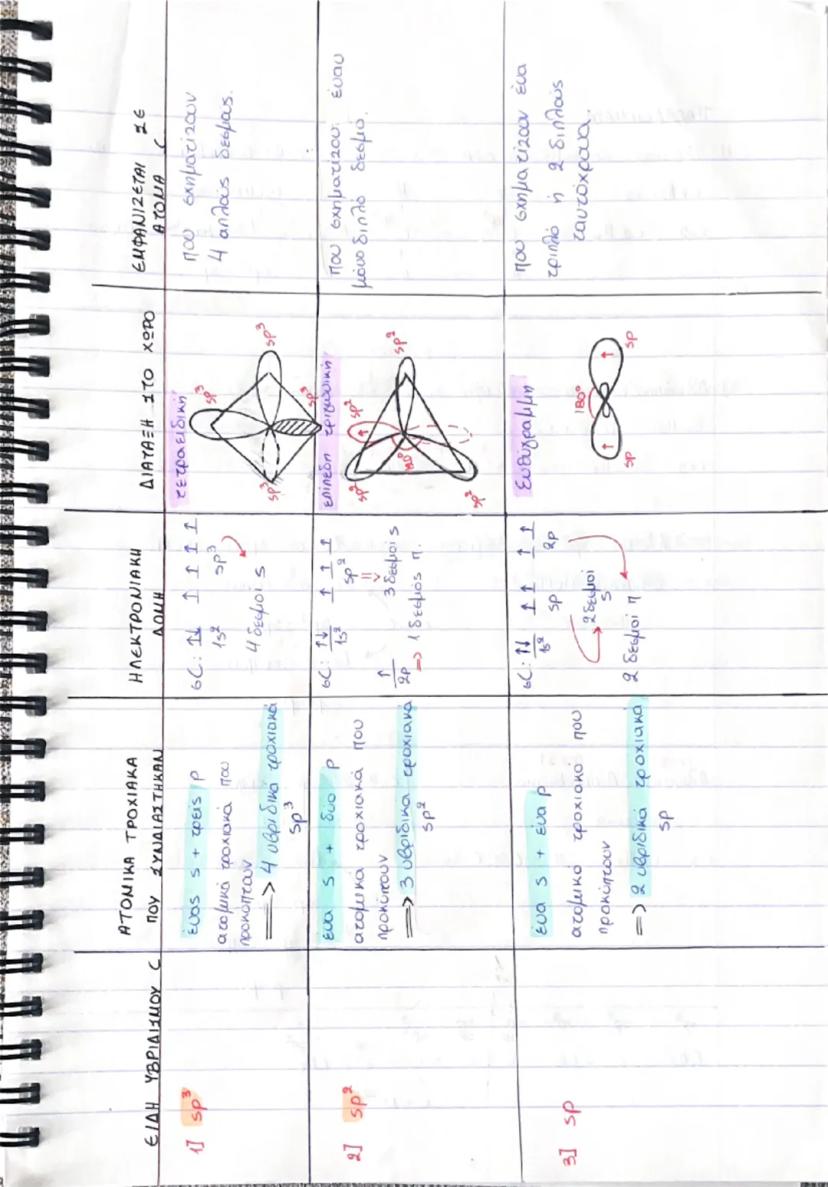 ΕΙΔΗ ΥΒΡΙΔΙΣΜΟΥ C
ΑΤΟΜΙΚΑ ΤΡΟΧΙΑΚΑ
ΠΟΥ ΣΥΝΔΙΑΣΤΗΚΑΝ
ΗΛΕΚΤΡΟΝΙΑΚΗ
ΔΟΜΗ
ΔΙΑΤΑΞΗ ΣΤΟ ΧΩΡΟ
ΕΜΦΑΝΙΖΕΤΑΙ ΣΕ
ΑΤΟΜΑ C
1] sp³
ένας s + τρεις p
ατομικά τροχιακά που
προκύπτουν
=> 4 υβριδικα τροχιακά
sp³
6C: ↑↓ ↑ ↑ ↑ ↑
1s² sp³
4 δεσμοί s
τετραεδική
sp³
sp³
sp³
sp³
που σχηματίζουν
4 απλούς δεσμούς.
2] sp²
ένα s + δύο p
ατομικα τροχιακά που
προκύπτουν
=> 3 υβριδικα τροχιακά
sp²
6C: ↑↓ ↑ ↑ ↑
1s² sp²
↑ 3 δεσμοί s
2p => 1 δεσμός π.
επίπεδη τριγωνική
sp²
sp²
sp²
sp²
που σχηματίζουν έναν
μόνο διπλό δεσμό.
3] sp
ένα s + ένα p
ατομικο τροχιακο που
προκύπτουν
=> 2 υβριδικά τροχιακά
sp
6C: ↑↓ ↑ ↑ ↑ ↑
1s² sp 2p
2 δεσμοί
s
2 δεσμοί π
Ευθύγραμμη
180°
sp
sp
που σχηματίζουν ένα
τριπλό η 2 διπλούς
ταυτόχρονα.